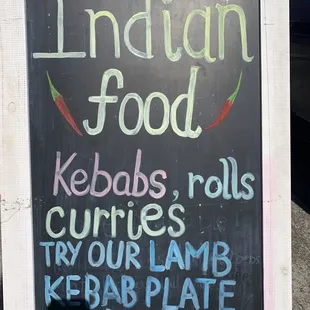 Indian
food
Kebabs, rolls
curries
TRY OUR LAMB
KEBAB PLATE